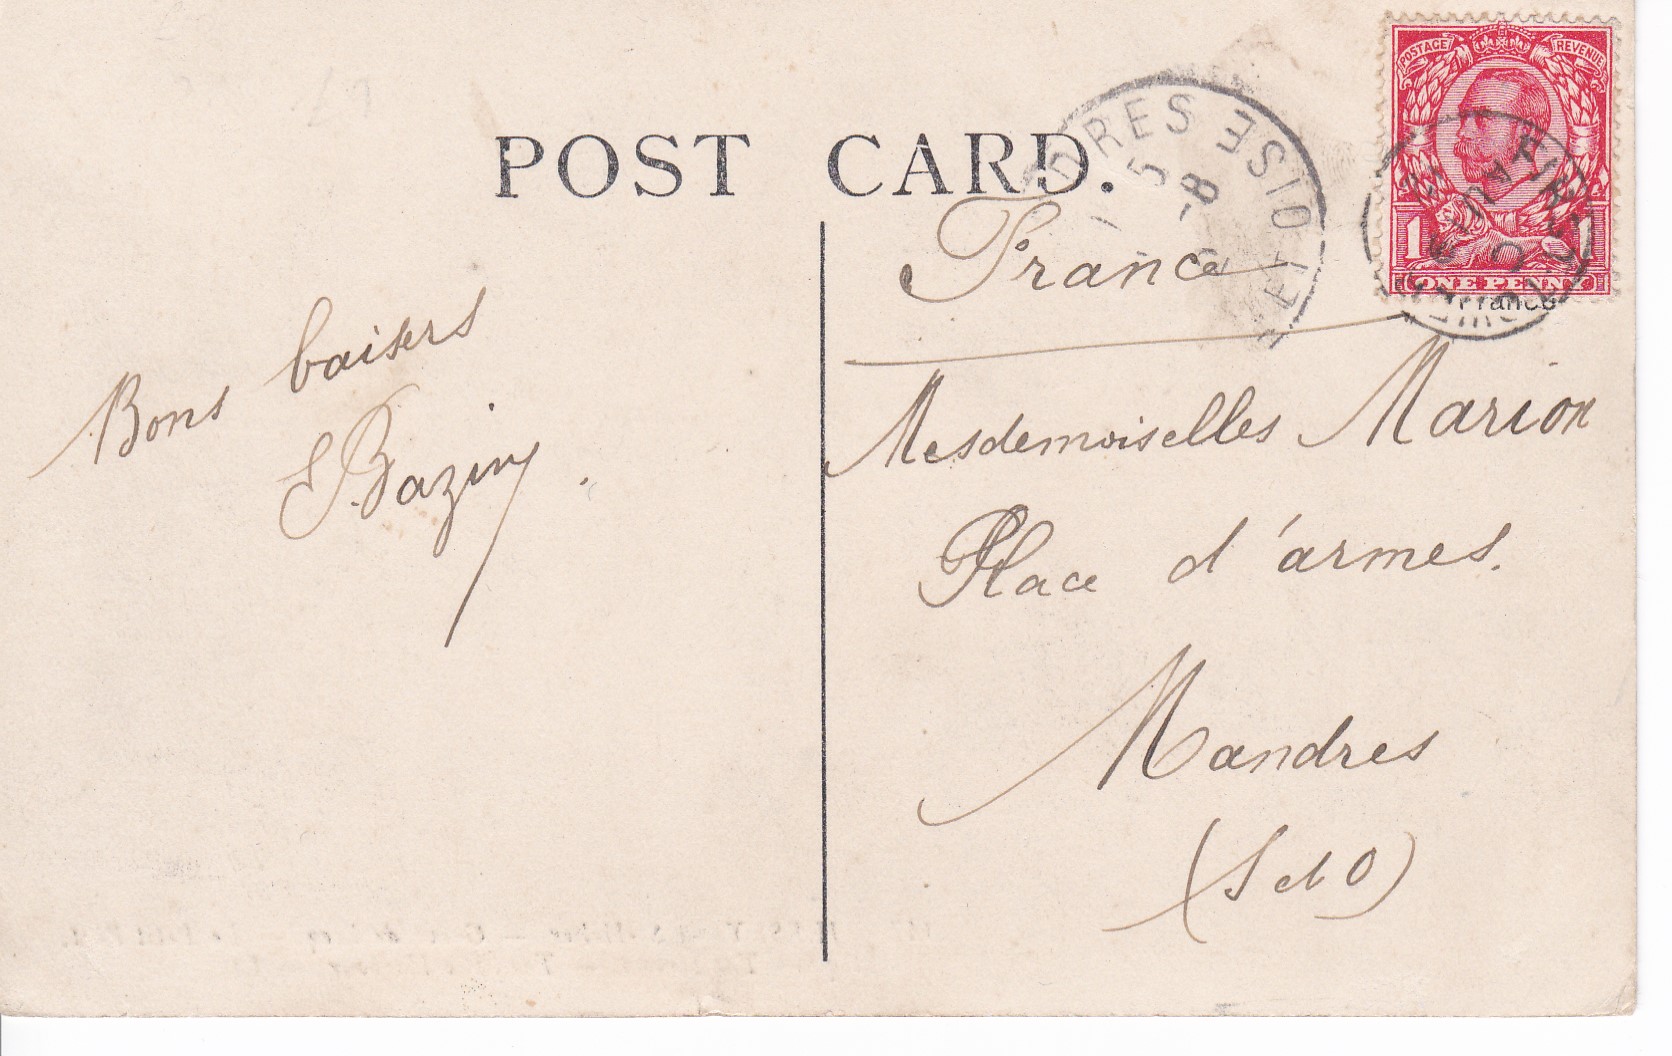 POST CARD.
POSTAGE REVENUE
1 1
ONE PENNY
France
DRES SEINE ET OISE
5 -8
France
Bons baisers
E Bazin
Mesdemoiselles Marion
Place d'armes.
Mandres
(S et O)